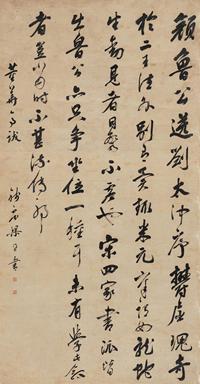 顏魯公送劉太沖序欝屈瑰奇
於二王法外別有異趣米元章謂如龍蛇
生動見者目驚不虛也宋四家書派皆
出魯公亦只爭坐位一種耳未有學此敘
者豈當時不甚流傳耶
董華亭跋